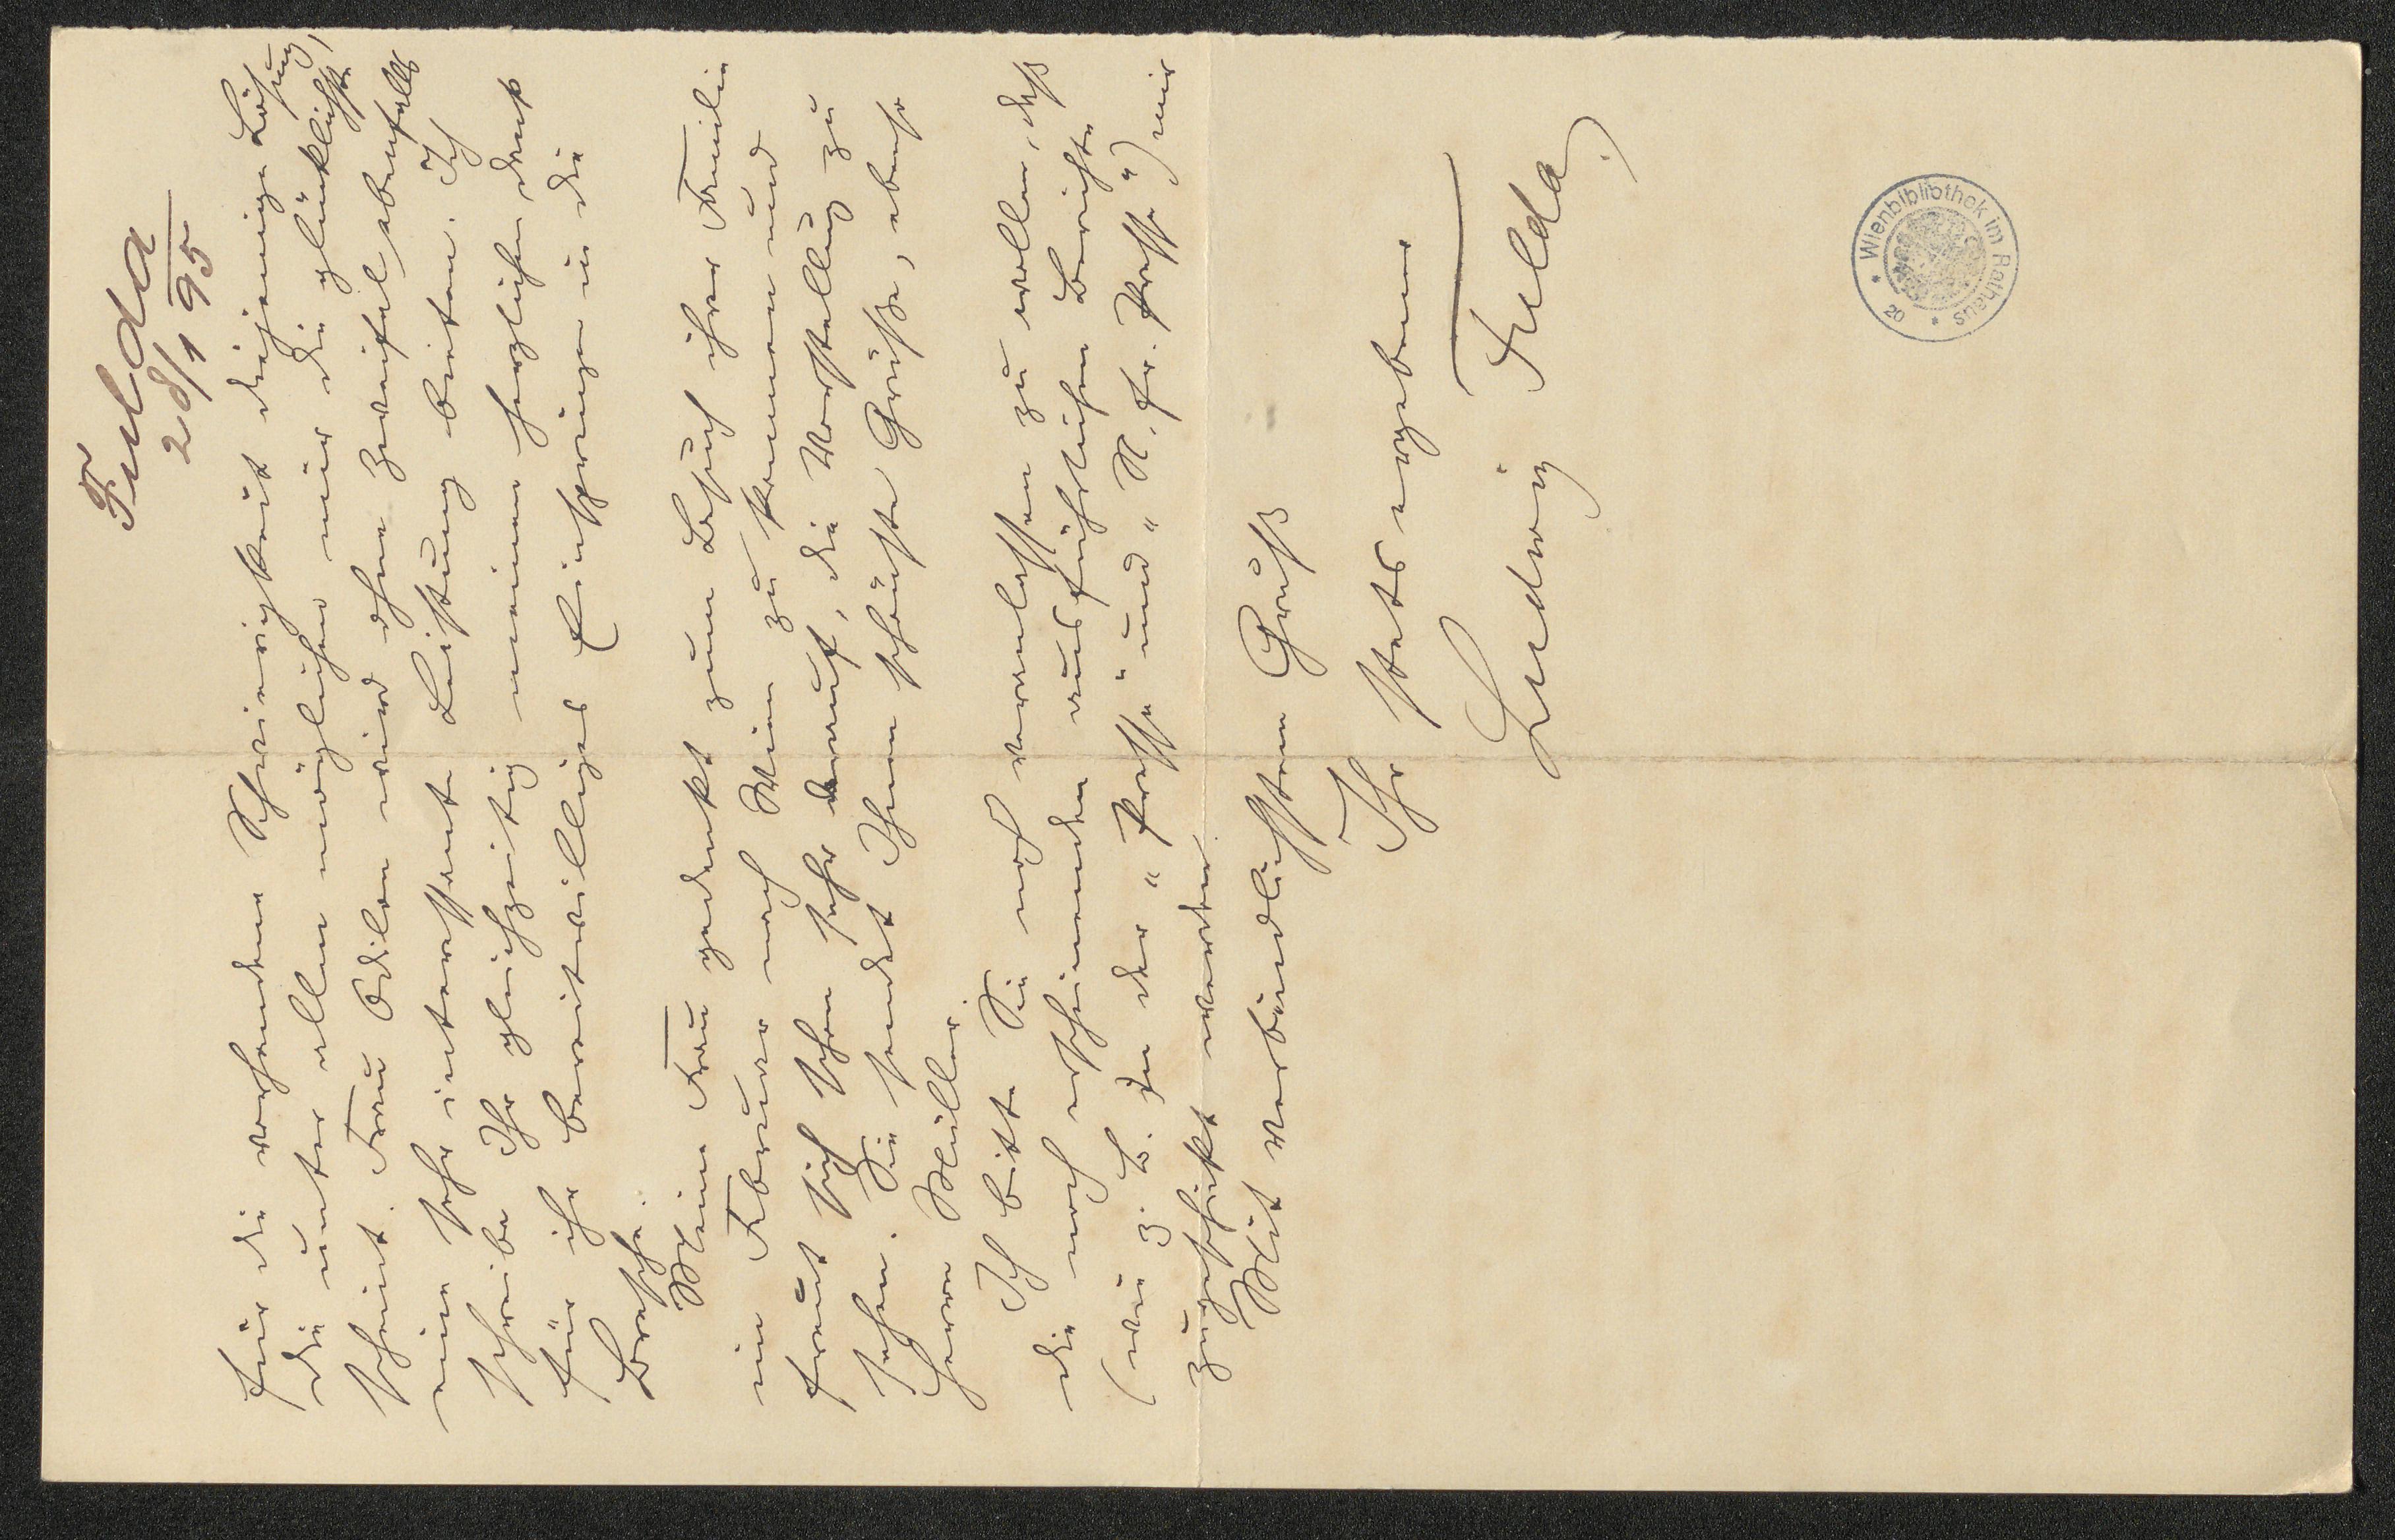 Fulda
28/1 95
für die vorhandene Schwierigkeit diejenige Lösung,
die unter allen möglichen mir die glücklichste
scheint. Frau Odilon wird ohne Zweifel ebenfalls
eine sehr interessante Leistung bieten. Ich
schreibe Ihr gleichzeitig meinen herzlichen Dank
für ihr bereitwilliges Einspringen in die
Bresche.
Meine Frau gedenkt zum Besuch ihrer Familie
im Februar nach Wien zu kommen und
freut sich schon sehr darauf, die Vorstellung zu
sehen. Sie sendet Ihnen schönste Grüße, ebenso
Herrn Müller.
Ich bitte Sie noch veranlassen zu wollen, daß
die noch erscheinenden ausführlichen Berichte
(wie z. B. in der „Presse" und „N. fr. Presse") mir
zugeschickt werden.
Mit verbindlichstem Gruß
Ihr stets ergebener
Ludwig Fulda
Wienbibliothek im Rathaus
20